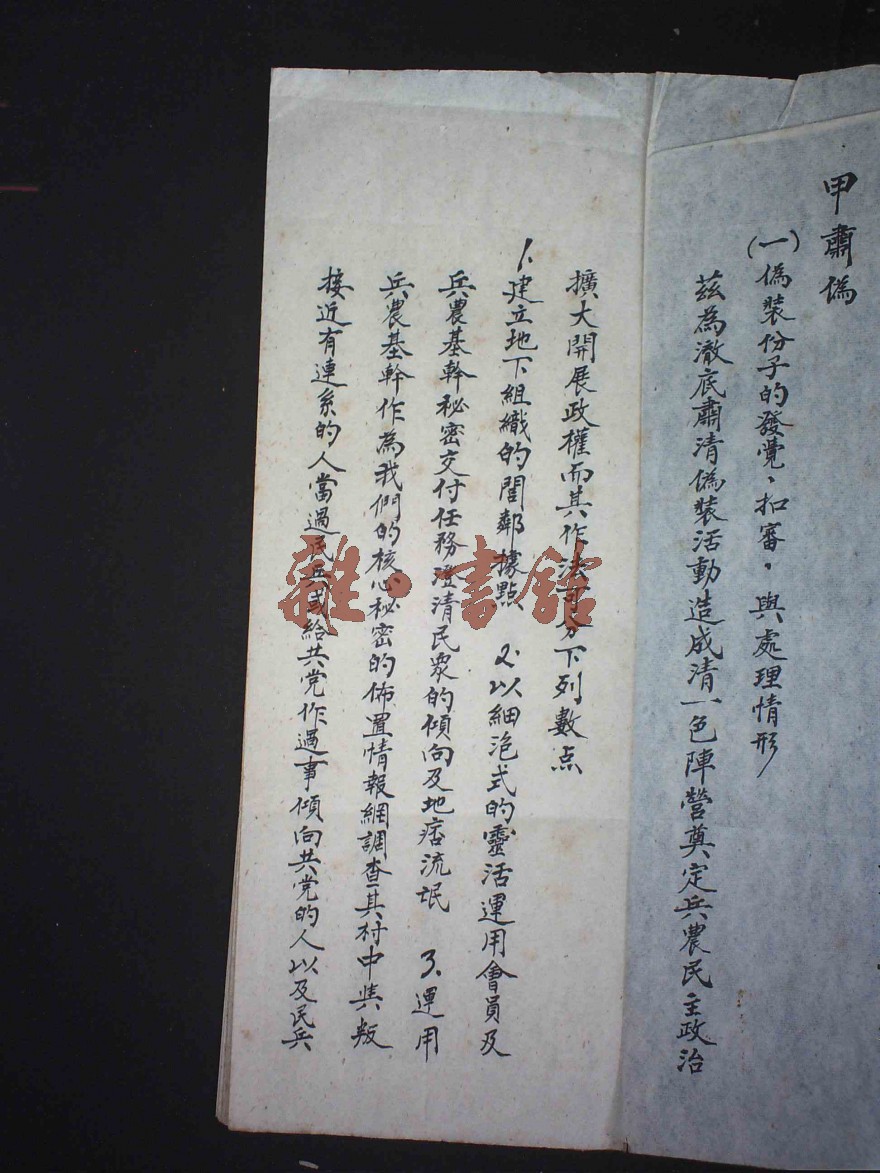 甲肅偽
(一)偽裝份子的發覺、扣審、與處理情形
茲為澈底肅清偽裝活動造成清一色陣營奠定兵農民主政治
擴大開展政權而其作法可分下列數点
1、建立地下組織的閭鄰據點 2、以細泡式的靈活運用會員及
兵農基幹秘密交付任務澄清民眾的傾向及地痞流氓 3、運用
兵農基幹作為我們的核心秘密的佈置情報網調查其村中與叛
接近有連系的人當過民兵或給共党作過事傾向共党的人以及民兵
雜·書館